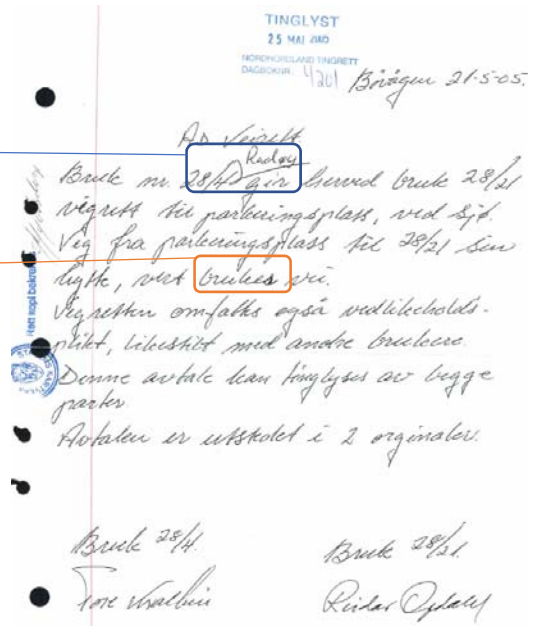 TINGLYST
25 MAI 2005
NORDHORDLAND TINGRETT
DAGBOKNR. 4201
Bøvågen 21-5-05.
Ad Veirett
Radøy
Bruk nr. 28/4 gir herved bruk 28/21
vegrett til parkeringsplass, ved sjø.
Veg fra parkeringsplass til 28/21 sin
hytte, vert brukes vei.
Vegretten omfatter også vedlikeholds-
plikt, likestilt med andre brukere.
Denne avtale kan tinglyses av begge
parter.
Avtalen er utstedet i 2 orginaler.
Rett kopi bekreftes
STATENS KARTVERK
Bruk 28/4.
Bruk 28/21.
Tore
Reidar Opdahl